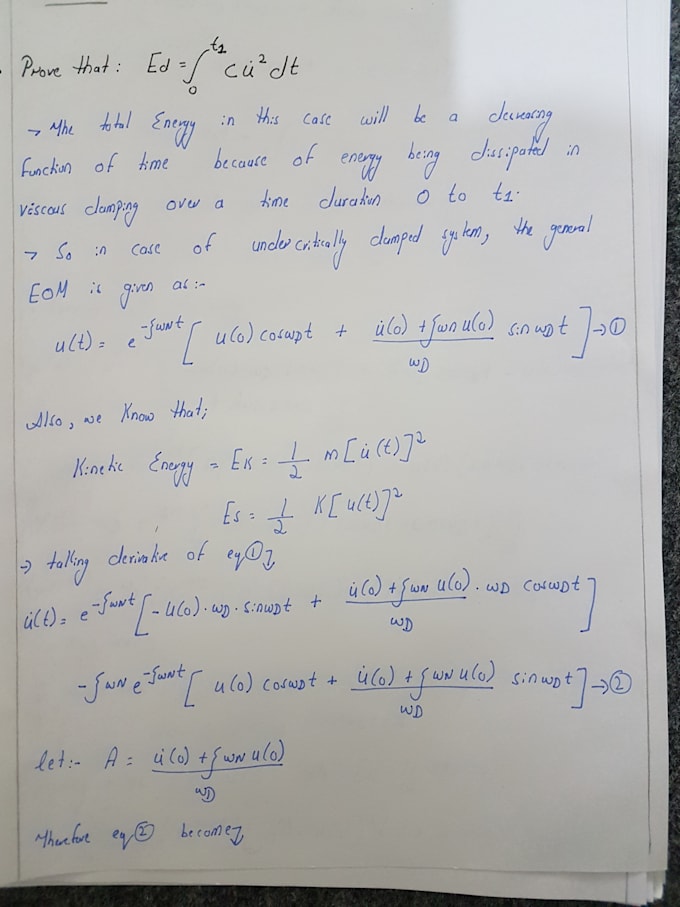 Prove that: Ed = ∫₀^t1 cu̇² dt
→ The total Energy in this case will be a decreasing
function of time because of energy being dissipated in
viscous damping over a time duration 0 to t1.
→ So in case of under critically damped system, the general
EOM is given as:-
u(t) = e^-ζωNt [ u(0) cosωDt + (u̇(0) + ζωn u(0))/ωD sin ωDt ] → ①
Also, we Know that;
Kinetic Energy = EK = 1/2 m[u̇(t)]²
Es = 1/2 K[u(t)]²
→ talking derivative of eq①
u̇(t) = e^-ζωNt [ -u(0)·ωD·sinωDt + (u̇(0) + ζωN u(0))/ωD · ωD cosωDt ]
-ζωN e^-ζωNt [ u(0) cosωDt + (u̇(0) + ζωN u(0))/ωD sinωDt ] → ②
let:- A = (u̇(0) + ζωN u(0))/ωD
Therefore eq② become